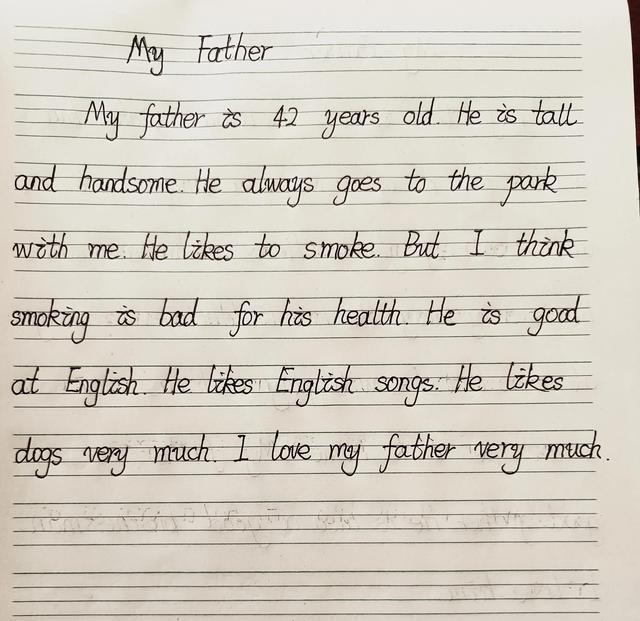 My Father
My father is 42 years old. He is tall
and handsome. He always goes to the park
with me. He likes to smoke. But I think
smoking is bad for his health. He is good
at English. He likes English songs. He likes
dogs very much. I love my father very much.